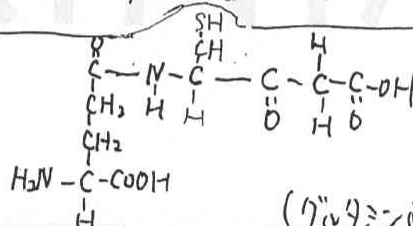 SH
CH H
O
C - N - C - C - C - C - OH
H H O H O
CH2
CH2
H2N - C - COOH
H
(グルタミン